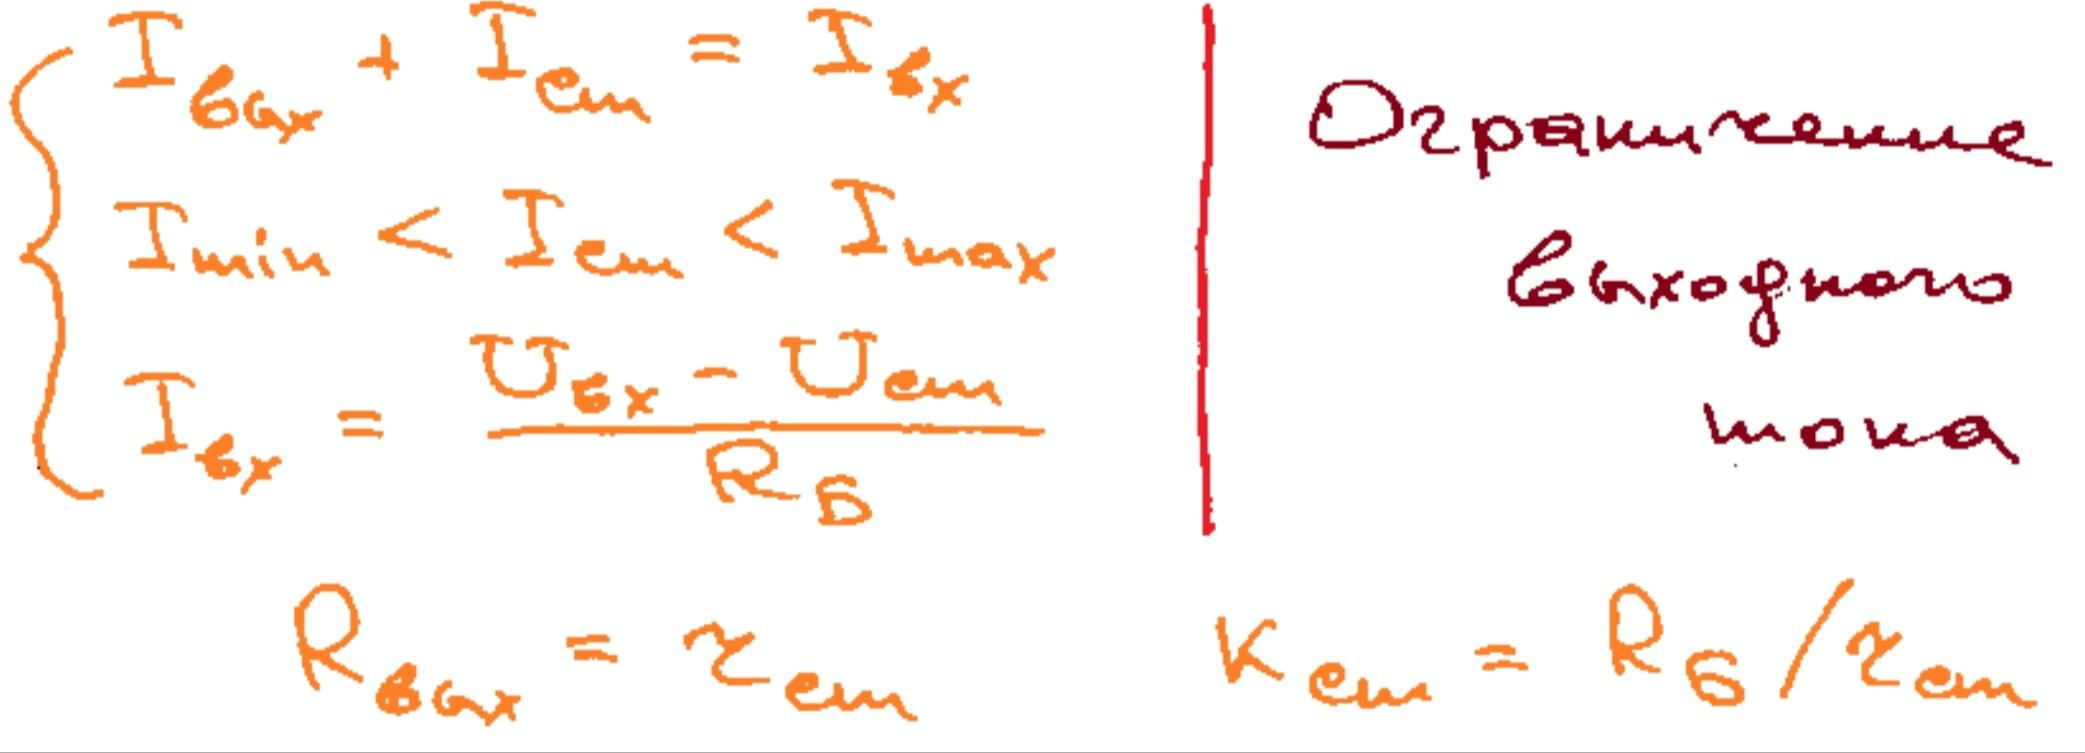 I вых + I ст = I вх
I min < I ст < I max
I вх = (U вх - U ст) / R Б
Ограничение
выходного
тока
R вых = r ст
K ст = R Б / r ст